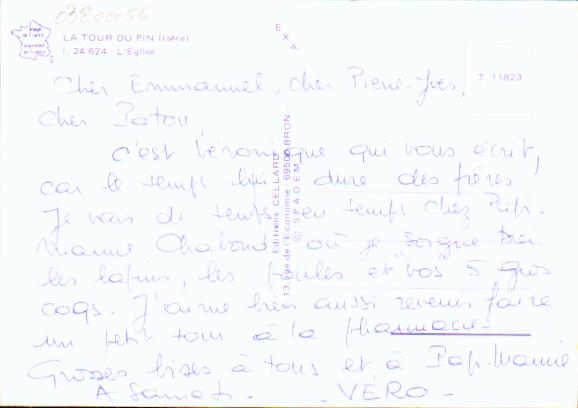 03800056
image de France
LA TOUR DU PIN (Isère)
I. 24 624 - L'Eglise.
EXA
T. 11823
Editions CELLARD
13, rue de l'Economie - 69500 BRON
© S.P.A.D.E.M.
Cher Emmanuel, cher Pierre-Yves,
cher Patou
C'est Véronique qui vous écrit,
car le temps lui dure des frères!
Je vais de temps en temps chez Papi-
Mamie Chaboud où je soigne bien
les lapins, les poules et "vos" 5 gros
coqs. J'aime bien aussi revenir faire
un petit tour à la pharmacie -
Grosses bises à tous et à Papi-Mamie
A Samedi - - VÉRO -